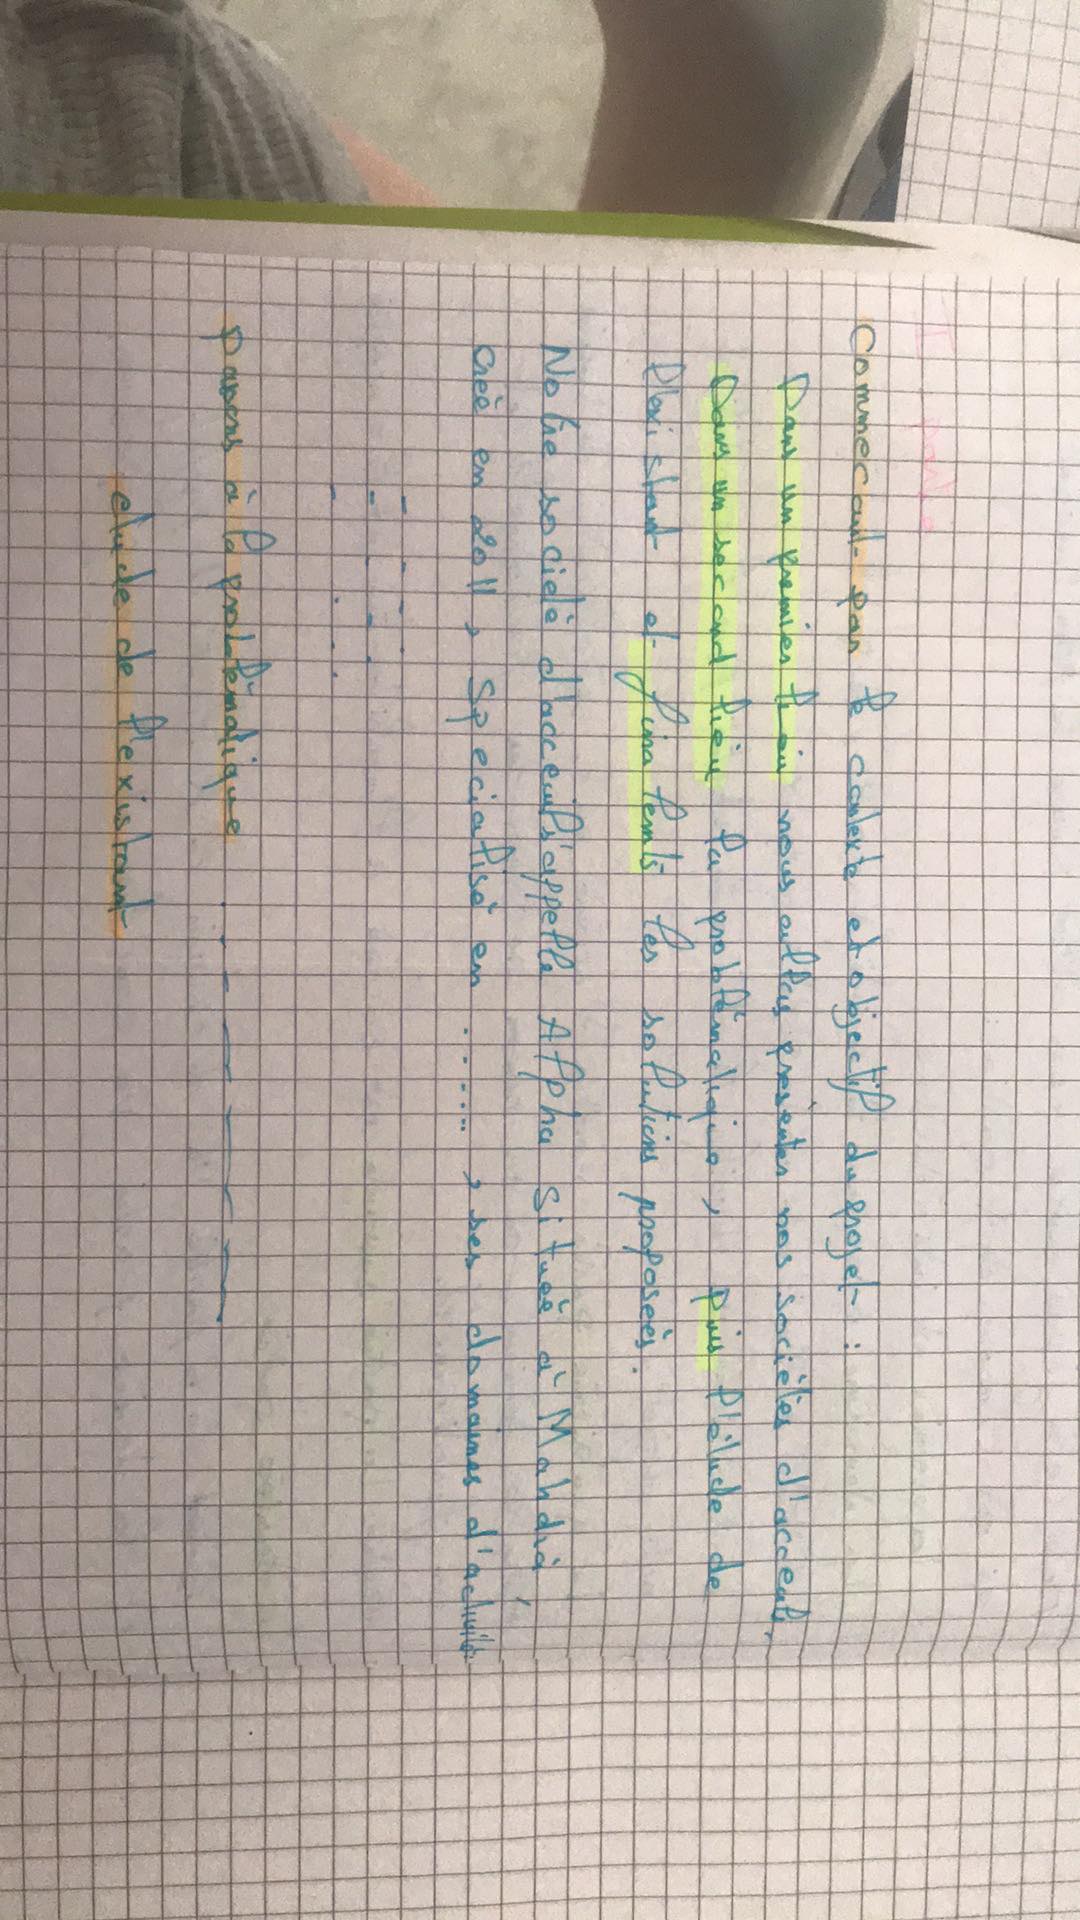 Commecant par le contexte et objectif du projet :
Dans un premier lieu nous allons présenter nos sociètès d'acceuil,
Dans un second lieu la problématique, puis l'étude de
l'existant et finalemts les solutions proposeès.
Notre societè d'acceuil s'appelle Alpha situeè à Mahdia,
creè en 2011, specialisè en ......, ses domaines d'activitè
passons à la problèmatique
etude de l'existant